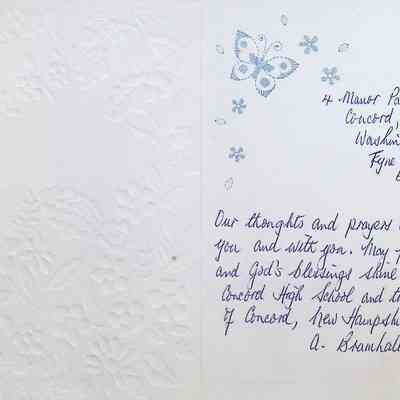 4 Manor Pa
Concord,
Washin
Tyne
Our thoughts and prayers
you and with you. May
and God's blessings shine
Concord High School and t
of Concord, New Hampshi
A. Bramhal